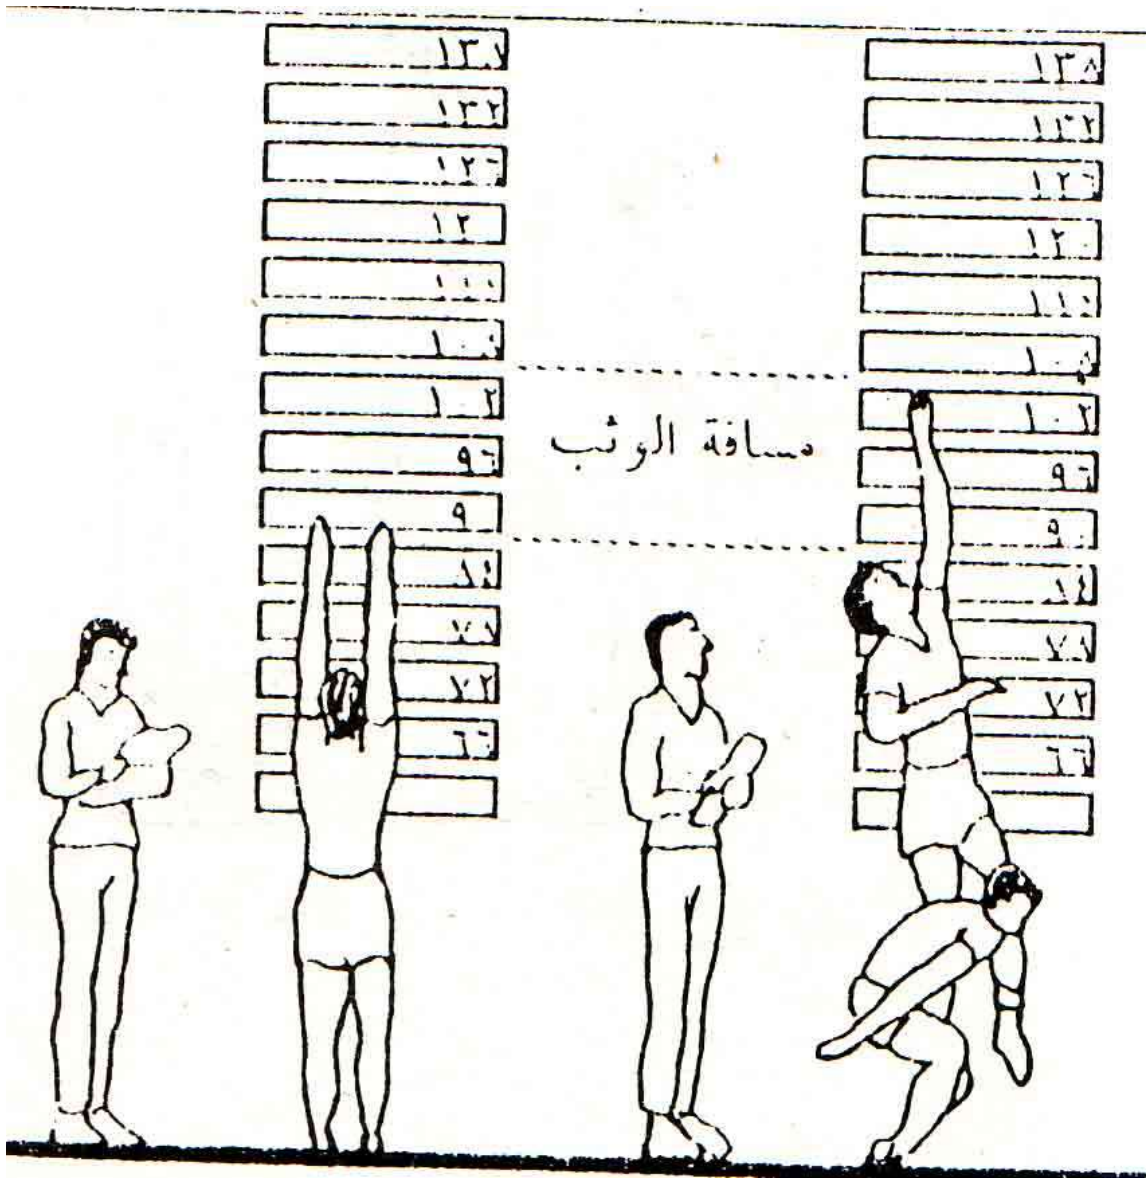 ١٣٨
١٣٢
١٢٦
١٢٠
١٠٨
١٠٢
٩٦
٩٠
٨٤
٧٨
٧٢
٦٦
مسافة الوثب
١٣٢
١٢٦
١٢
١٠٢
٩٦
٩
٨٤
٧٨
٧٢
٦٦